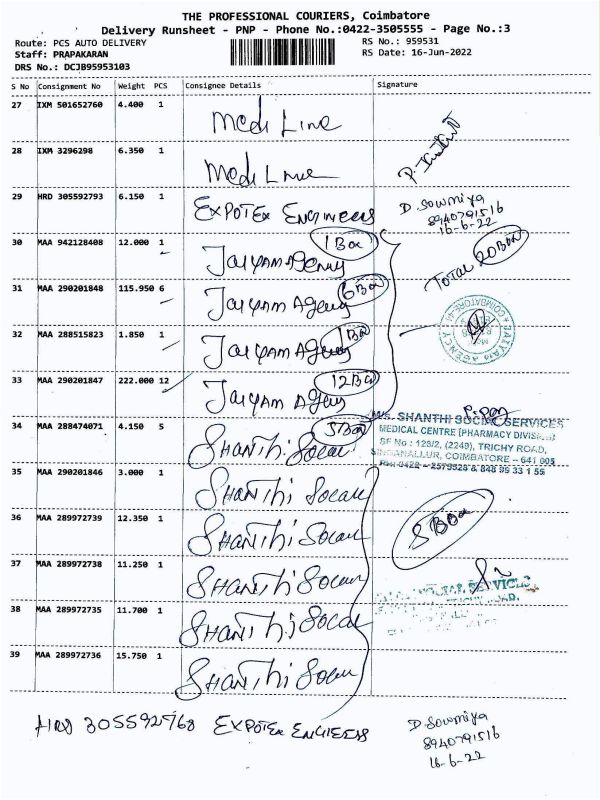 THE PROFESSIONAL COURIERS, Coimbatore
Delivery Runsheet - PNP - Phone No.:0422-3505555 - Page No.:3
Route: PCS AUTO DELIVERY RS No.: 959531
Staff: PRAPAKARAN RS Date: 16-Jun-2022
DRS No.: DCJB95953103
S No Consignment No Weight PCS Consignee Details Signature
27 IXM 501652760 4.400 1 Medi Line
28 IXM 3296298 6.350 1 Medi Line
29 HRD 305592793 6.150 1 EXPOTEX ENGINEERS D. Sowmiya
8940791516
16-6-22
30 MAA 942128408 12.000 1 JAIYAM AGENCY 1 Box Total 20 Box
31 MAA 290201848 115.950 6 JAIYAM AGENCY 6 Box
COIMBATORE
JAIYAM AGENCY
32 MAA 288515823 1.850 1 JAIYAM AGENCY 1 Box
33 MAA 290201847 222.000 12 JAIYAM AGENCY 12 Box
34 MAA 288474071 4.150 5 SHANTHI SOCIAL 5 Box
M/s. SHANTHI SOCIAL SERVICES
MEDICAL CENTRE (PHARMACY DIVISION)
SF No : 128/2, (2249), TRICHY ROAD,
SINGANALLUR, COIMBATORE - 641 005
35 MAA 290201846 3.000 1 SHANTHI SOCIAL
36 MAA 289972739 12.350 1 SHANTHI SOCIAL 5 Box
37 MAA 289972738 11.250 1 SHANTHI SOCIAL
38 MAA 289972735 11.700 1 SHANTHI SOCIAL
39 MAA 289972736 15.750 1 SHANTHI SOCIAL
HRD 305592768 EXPOTEX ENGINEERS D. Sowmiya
8940791516
16-6-22